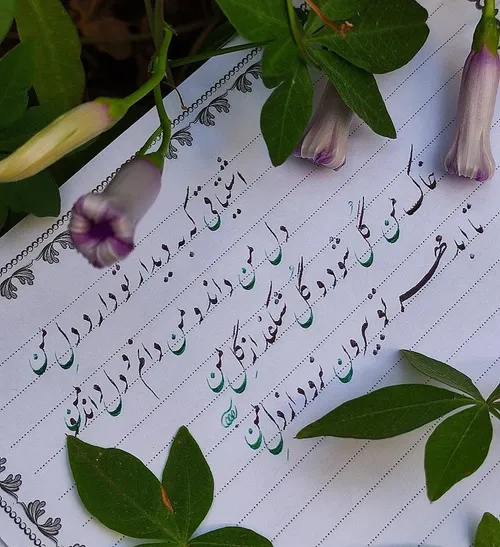 اشتیاقی که به دیدار تو دارد دلِ من
دل من داند و من دانم و دل داند و من
خاک من گل شود و گُل شکفد از گِل من
تا ابد مهر تو بیرون نرود از دلِ من